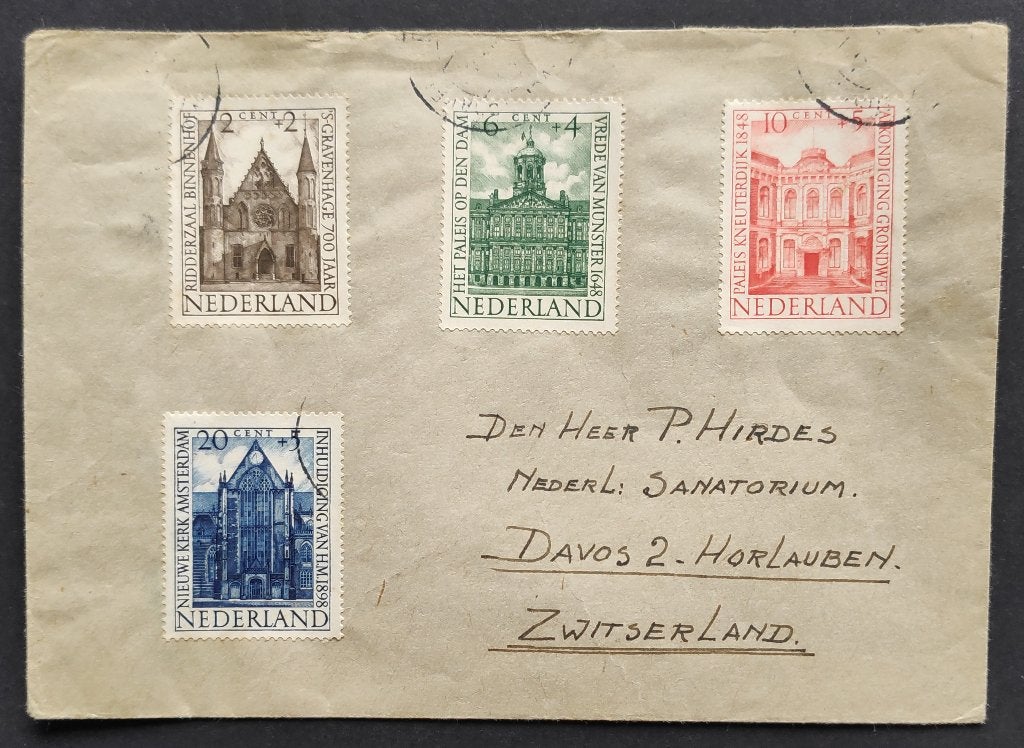 2 CENT +2
RIDDERZAAL BINNENHOF
'S-GRAVENHAGE 700 JAAR
NEDERLAND
6 CENT +4
HET PALEIS OP DEN DAM
VREDE VAN MUNSTER 1648
NEDERLAND
10 CENT +5
PALEIS KNEUTERDIJK 1848
AFKONDIGING GRONDWET
NEDERLAND
20 CENT +5
NIEUWE KERK AMSTERDAM
INHULDIGING VAN H.M. 1898
NEDERLAND
DEN HEER P. HIRDES
NEDERL: SANATORIUM.
DAVOS 2 - HORLAUBEN.
ZWITSERLAND.